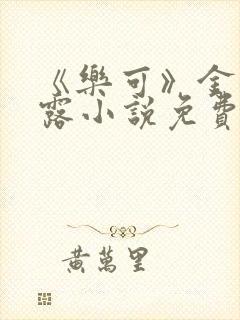 《樂可》金
露小說免費
黃萬里